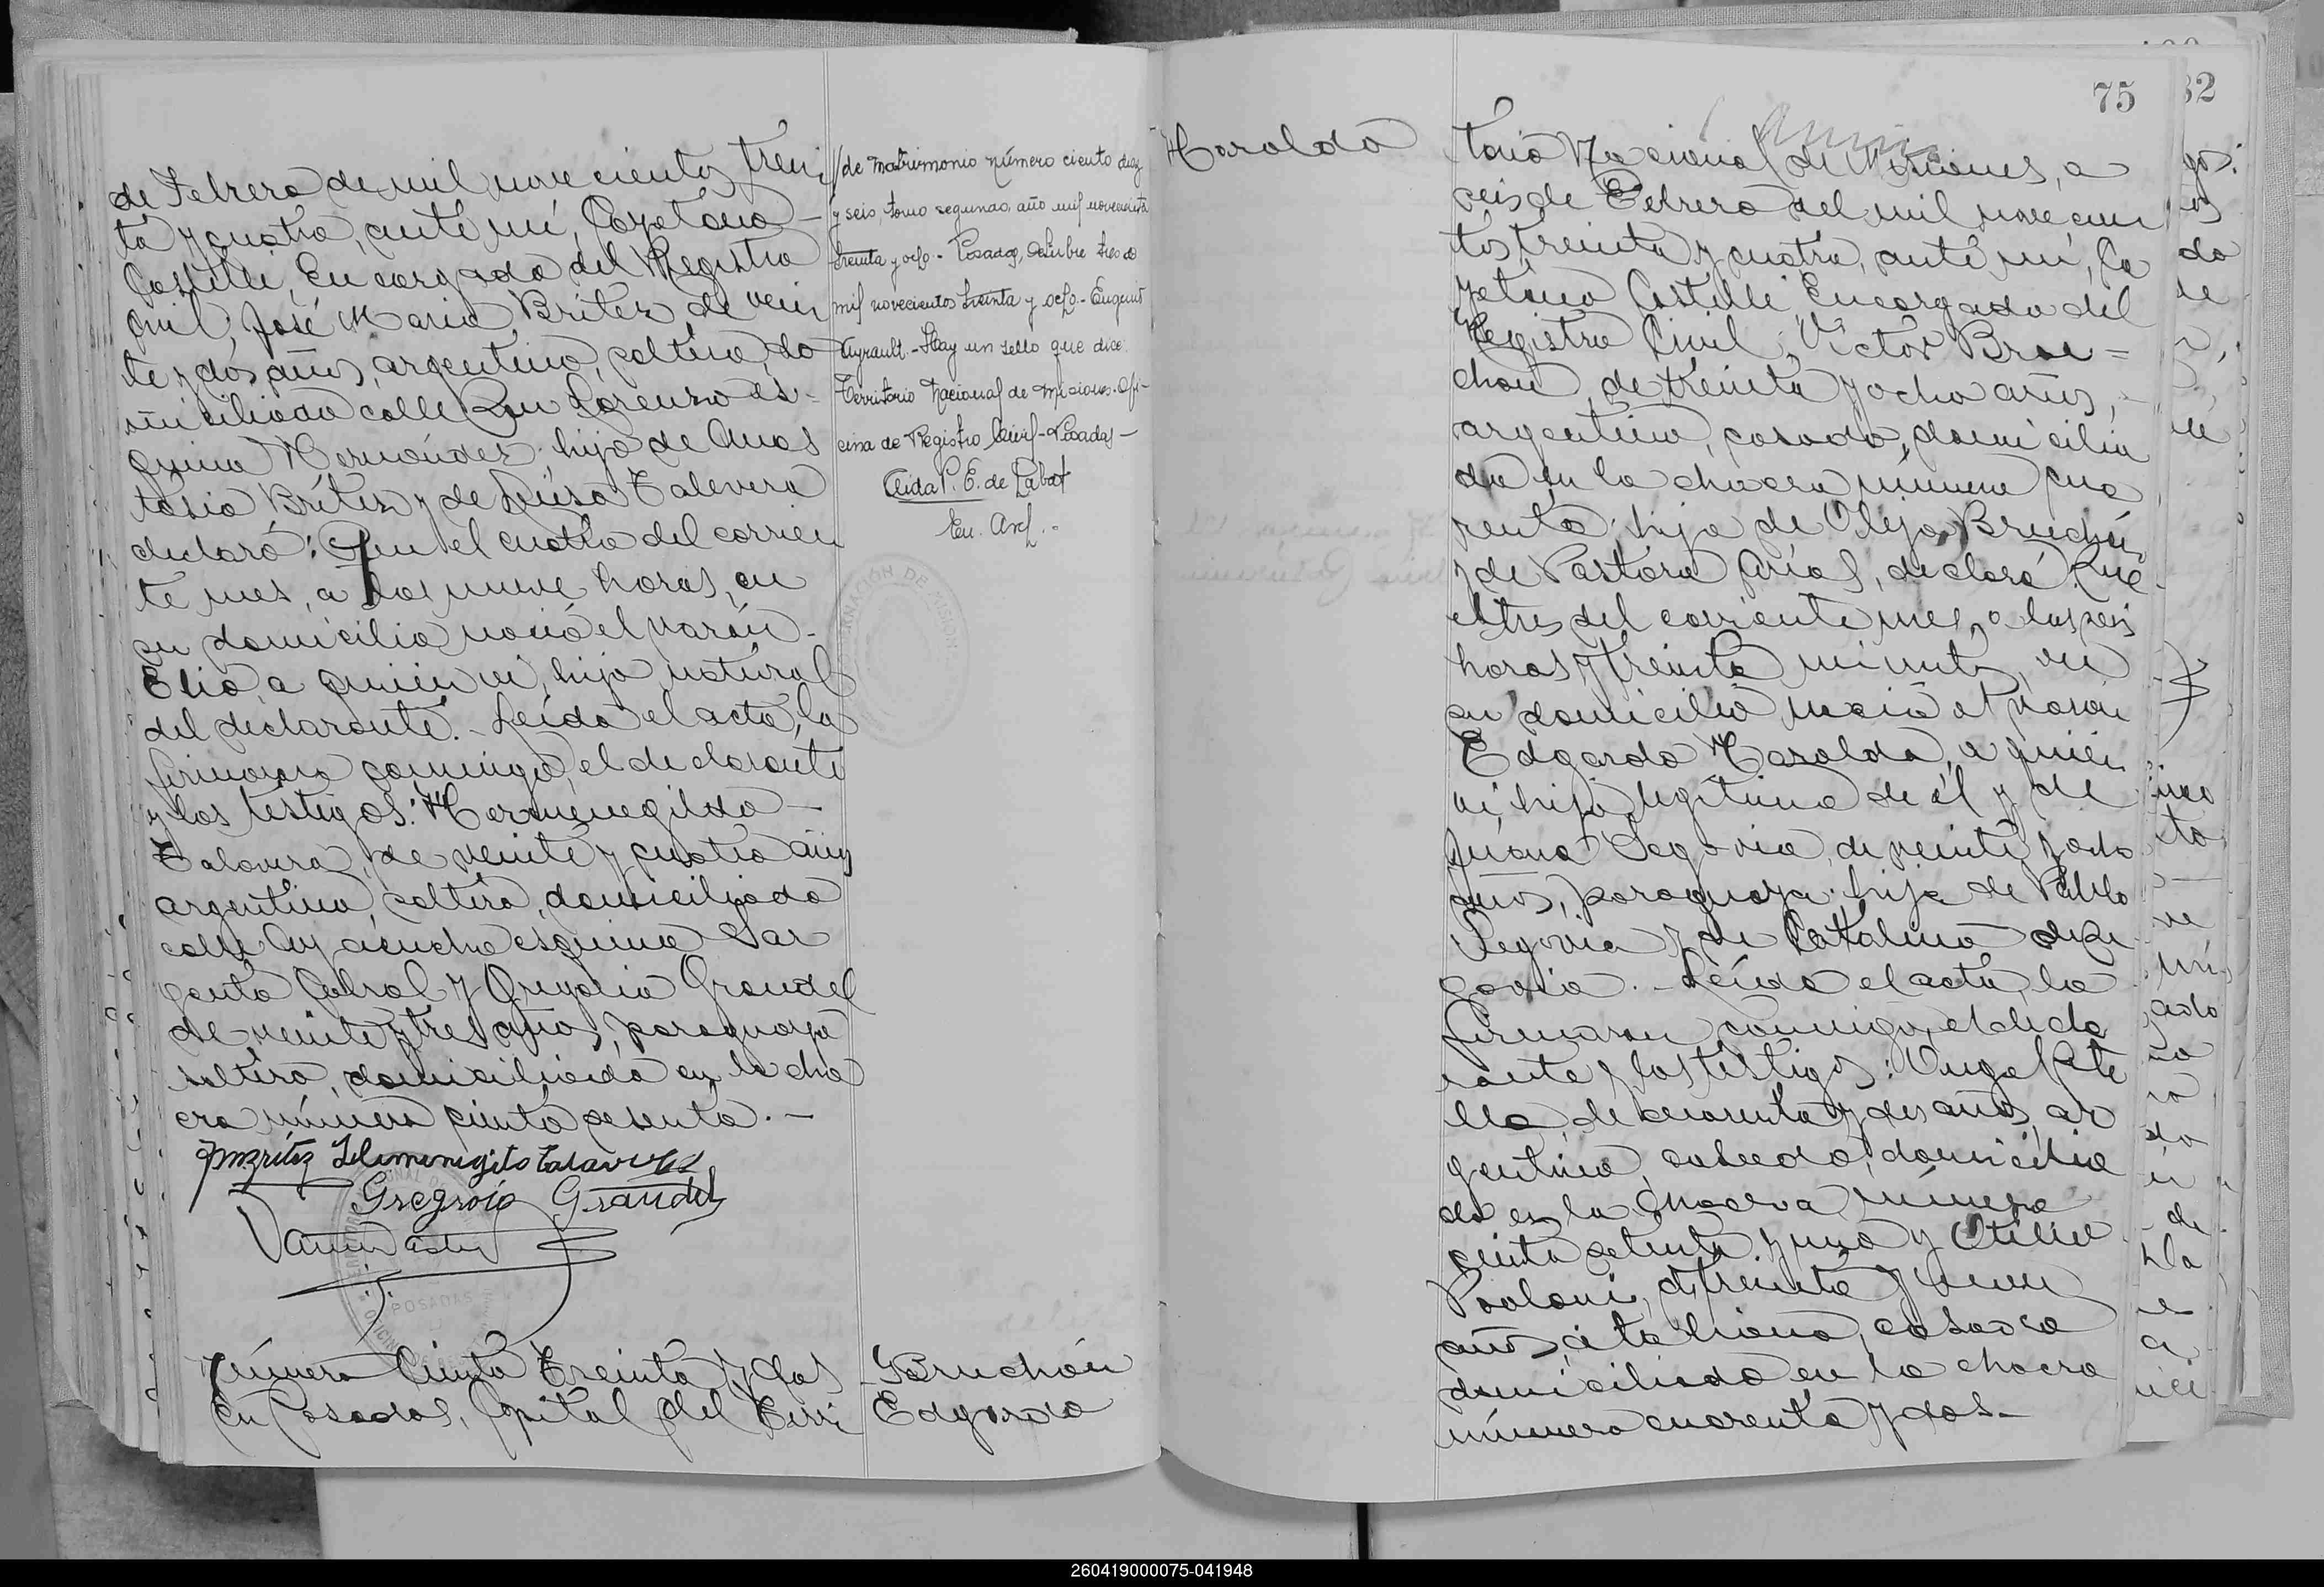 de Febrero de mil novecientos trein
ta y cuatro, ante mí, Cayetano
Castelli, Encargado del Registro
Civil; José Maria Britez de vein
te y dos años, argentino, soltero, do
miciliado calle San Lorenzo es-
quina Hernández hijo de Anas
tasio Britez y de Luisa Talavera
declaró: Que el cuatro del corrien
te mes, a las nueve horas, en
su domicilio nació el varón
Elio, a quien vi, hijo natural
del declarante. Leida el acta, la
firmaron conmigo, el declarante
y los testigos: Hermenegildo
Talavera, de veinte y cuatro años
argentino, soltero, domiciliado
calle Ayacucho esquina Sar
gento Cabral y Gregorio Grandel
de veinte y tres años, paraguayo
soltero, domiciliado en la cha
cra número ciento sesenta.
JmBritez
Gregroio Grandel
POSADAS
Número Ciento Treinta y dos
En Posadas, Capital del Terri
/de matrimonio número ciento diez
y seis, tomo segundo, año mil novecientos
treinta y ocho - Posadas, Octubre tres de
mil novecientos treinta y ocho.- Eugenio
Ayrault.- Hay un sello que dice:
Territorio Nacional de Misiones. Ofi-
cina de Registro Civil - Posadas -
Aida P. E. de Labat
En. Arch.
Bruchón
Edgardo
Haroldo
75
torio Nacional de Misiones, a
seis de Febrero del mil novecien
tos treinta y cuatro, ante mí, Ca
yetano Castelli, Encargado del
Registro Civil; Victor Bru-
chon, de treinta y ocho años,
argentino, casado, domicilia
do en la chacra número cua
renta; hijo de Olijo Bruchón
y de Pastora Arias, declaró: Que
el tres del corriente mes, a las seis
horas y treinta minutos, en
su domicilio nació el varón
Edgardo Haroldo, a quien
vi, hijo legitimo de él y de
Juana Segovia, de veinte y ocho
años, paraguaya hija de Pablo
Segovia y de Catalina de Se
govia. - Leida el acta, la
firmaron conmigo, el decla
rante y los testigos: Angel
de cuarenta y dos años, ar
gentino, casado, domicilia
do en la chacra número
ciento setenta y uno y Otilio
Paoloni, de treinta y nueve
años, italiano, casado
domiciliado en la chacra
número cuarenta y dos-
260419000075-041948